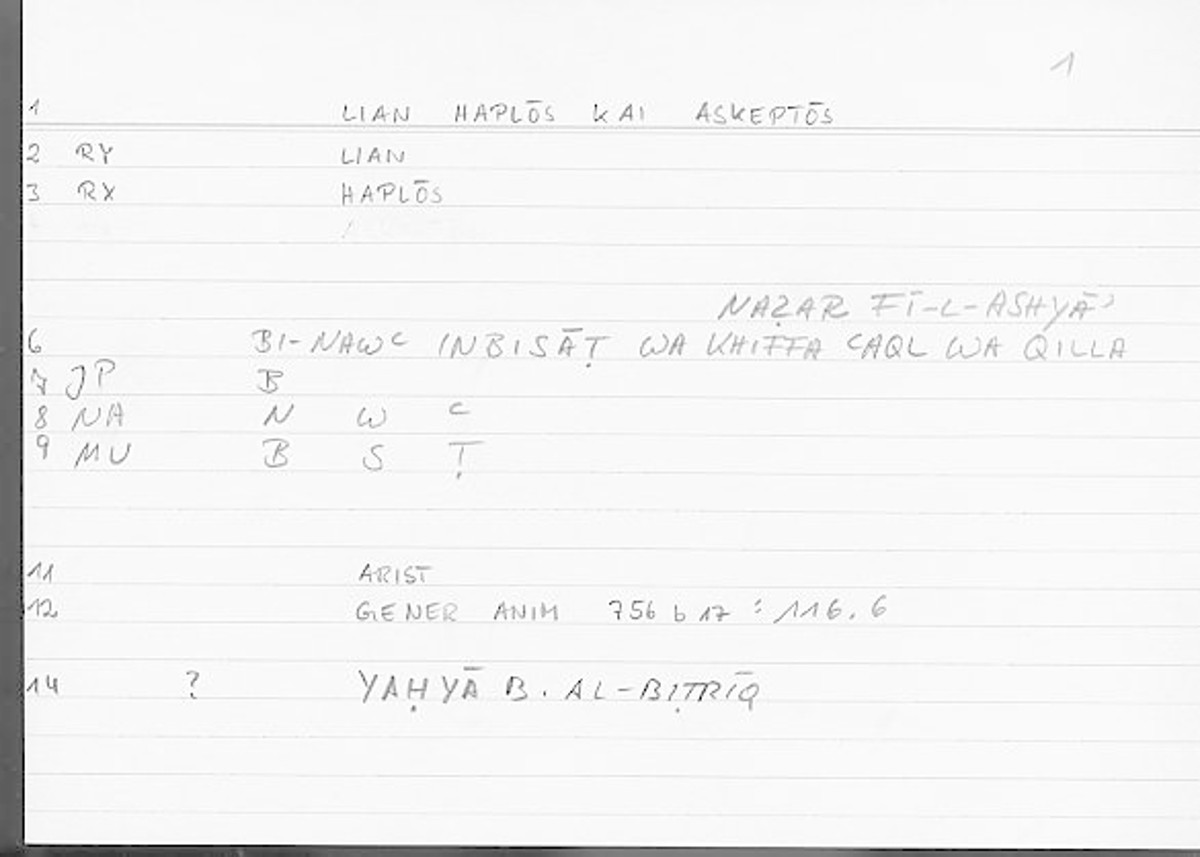 1
1 LIAN HAPLŌS KAI ASKEPTŌS
2 RY LIAN
3 RX HAPLŌS
NAẒAR FĪ-L-ASHYĀʾ
6 BI-NAWʿ INBISĀṬ WA KHIFFA ʿAQL WA QILLA
7 JP B
8 NA N W ʿ
9 MU B S Ṭ
11 ARIST
12 GENER ANIM 756 b 17 : 116.6
14 ? YAḤYĀ B. AL-BIṬRĪQ